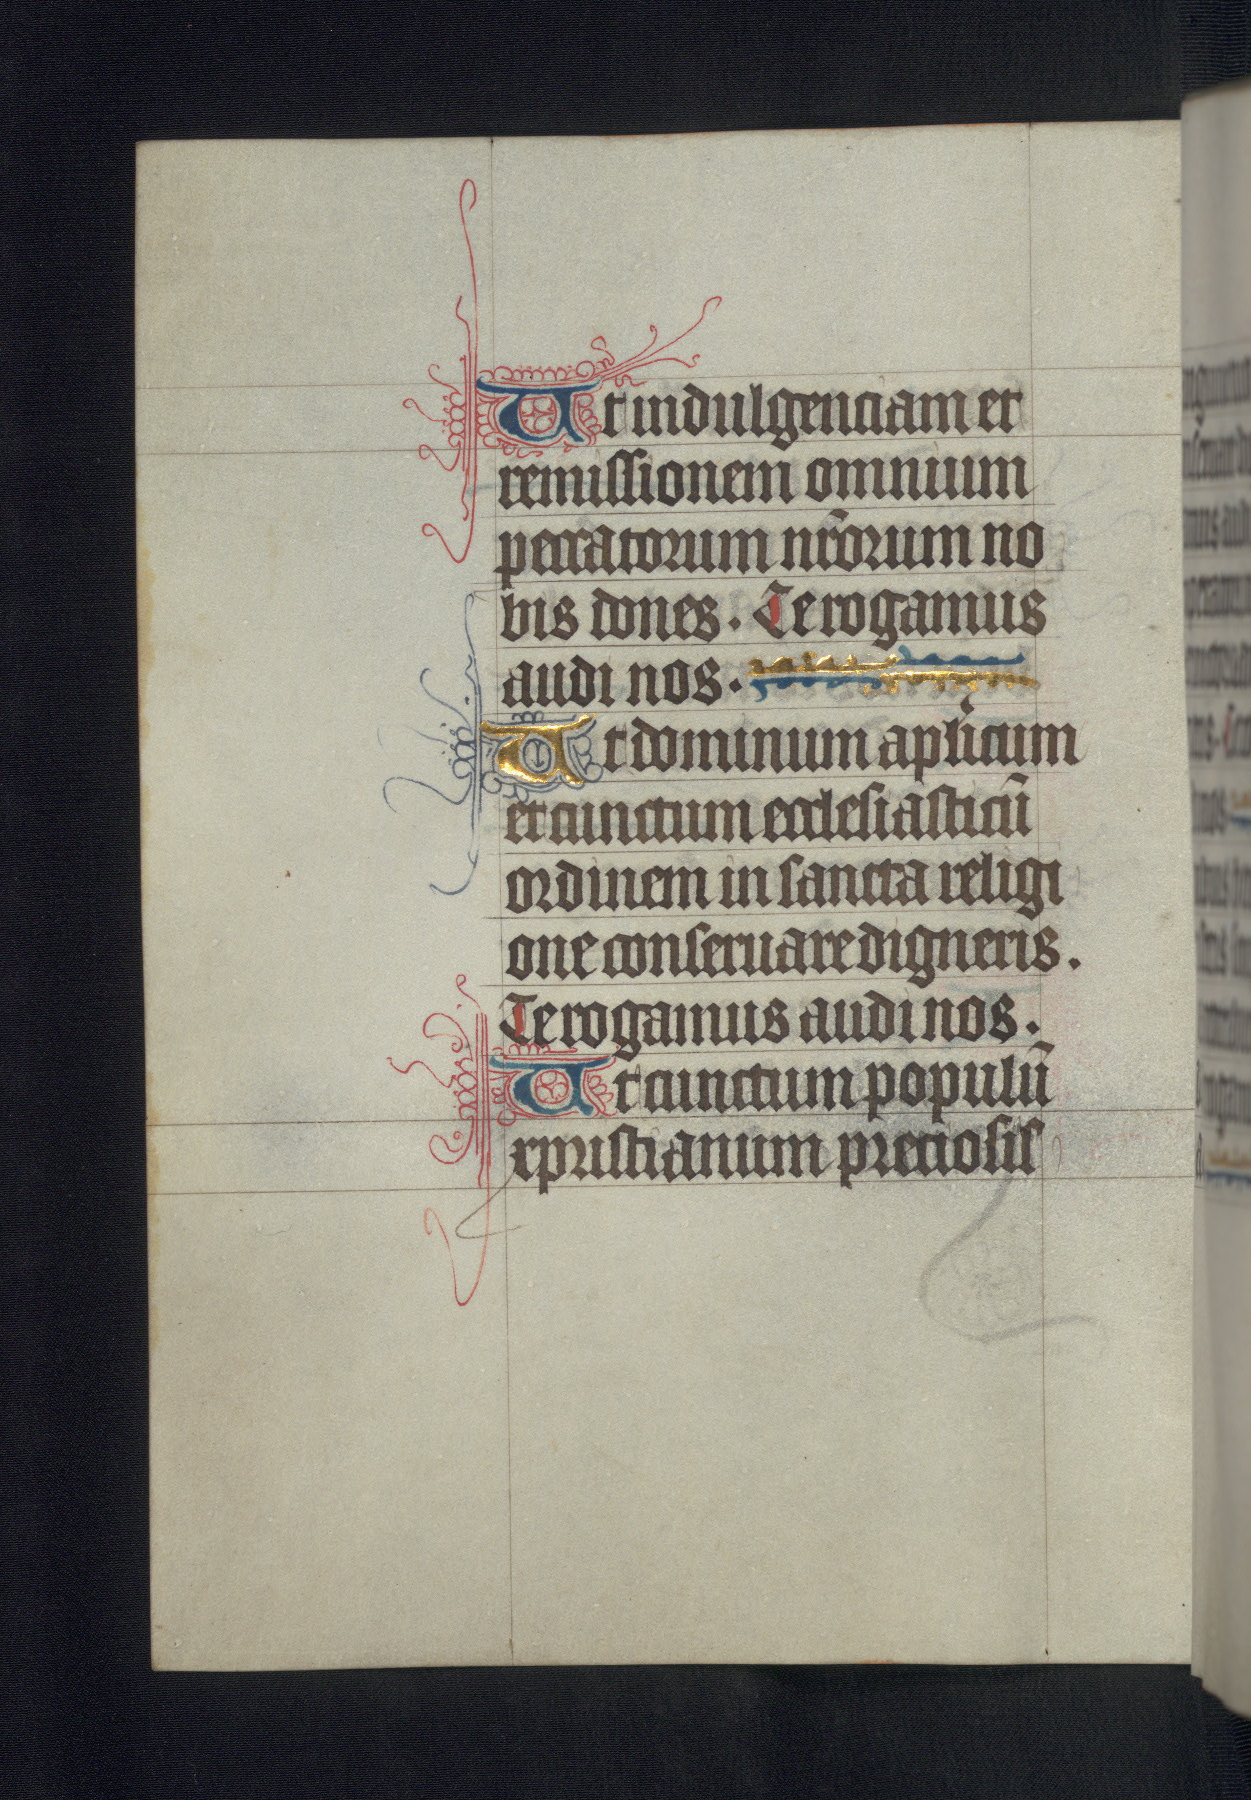 Ut indulgenciam et
remissionem omnium
peccatorum nr̄orum no
bis dones. Te rogamus
audi nos.
Ut dominum aplicum
et cunctum ecclesiasticū
ordinem in sancta religi
one conseruare digneris.
Te rogamus audi nos.
Ut cunctum populū
xpristianum preciosis